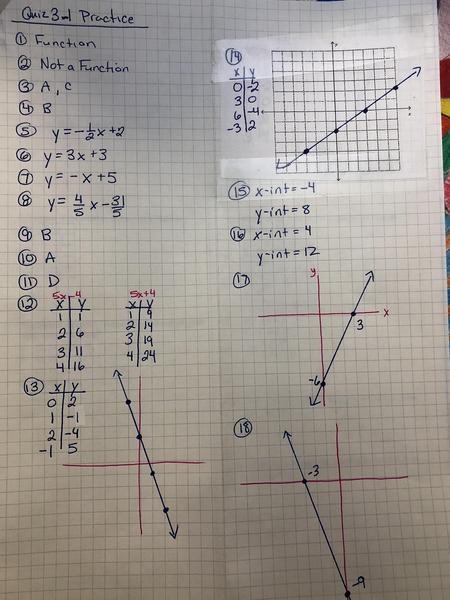 Quiz 3-1 Practice
① Function
② Not a Function
③ A, C
④ B
⑤ y = -1/2x + 2
⑥ y = 3x + 3
⑦ y = -x + 5
⑧ y = 4/5 x - 31/5
⑨ B
⑩ A
⑪ D
⑫ 5x-4
x y
1 1
2 6
3 11
4 16
5x+4
x y
1 9
2 14
3 19
4 24
⑬ x y
0 2
1 -1
2 -4
-1 5
⑭
x y
0 -2
3 0
6 -4
-3 2
⑮ x-int = -4
y-int = 8
⑯ x-int = 4
y-int = 12
⑰ y
x
3
-6
⑱
-3
-9